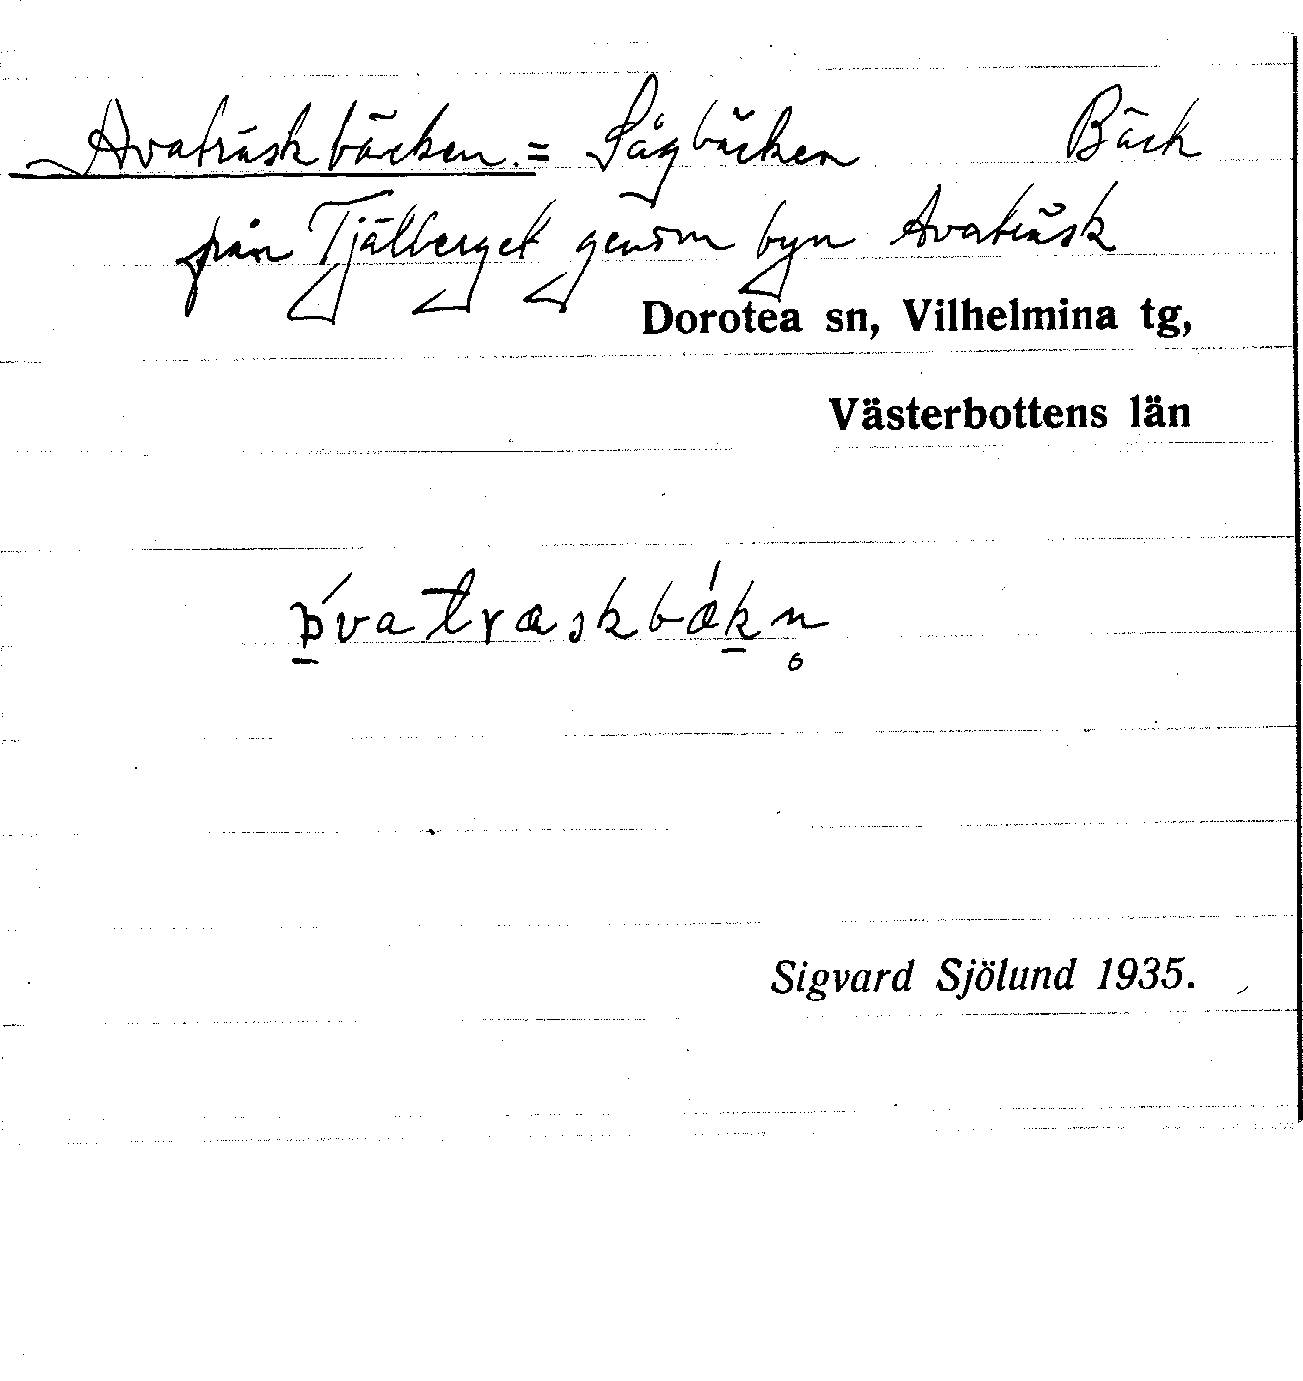 Avaträskbäcken. = Sågbäcken Bäck
från Tjälberget genom byn Avaträsk
Dorotea sn, Vilhelmina tg,
Västerbottens län
Sigvard Sjölund 1935.